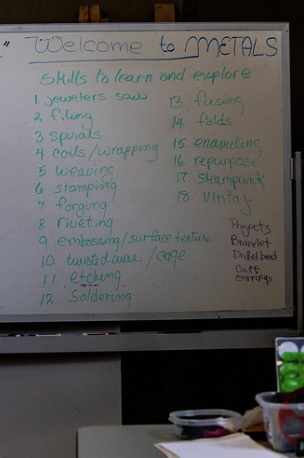 Welcome to METALS
Skills to learn and explore
1 jewelers saw
2 filing
3 spirals
4 coils/wrapping
5 weaving
6 stamping
7 forging
8 riveting
9 embossing/surface texture
10 twisted wire/cage
11 etching
12 Soldering
13. fusing
14. folds
15 enameling
16 repurpose
17. Steampunk
18. Vintaj
Projects
Bracelet
Drilled bead
Cuff
earrings